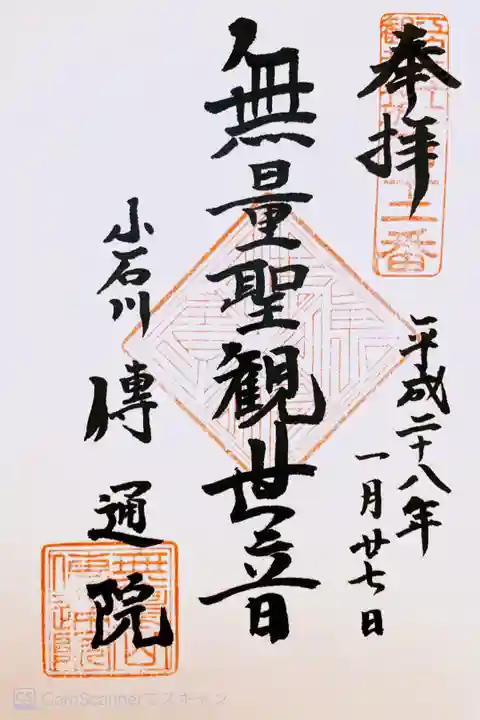 奉拝
平成二十八年
一月廿七日
無量聖観世音
小石川
傳通院
CS CamScannerでスキャン